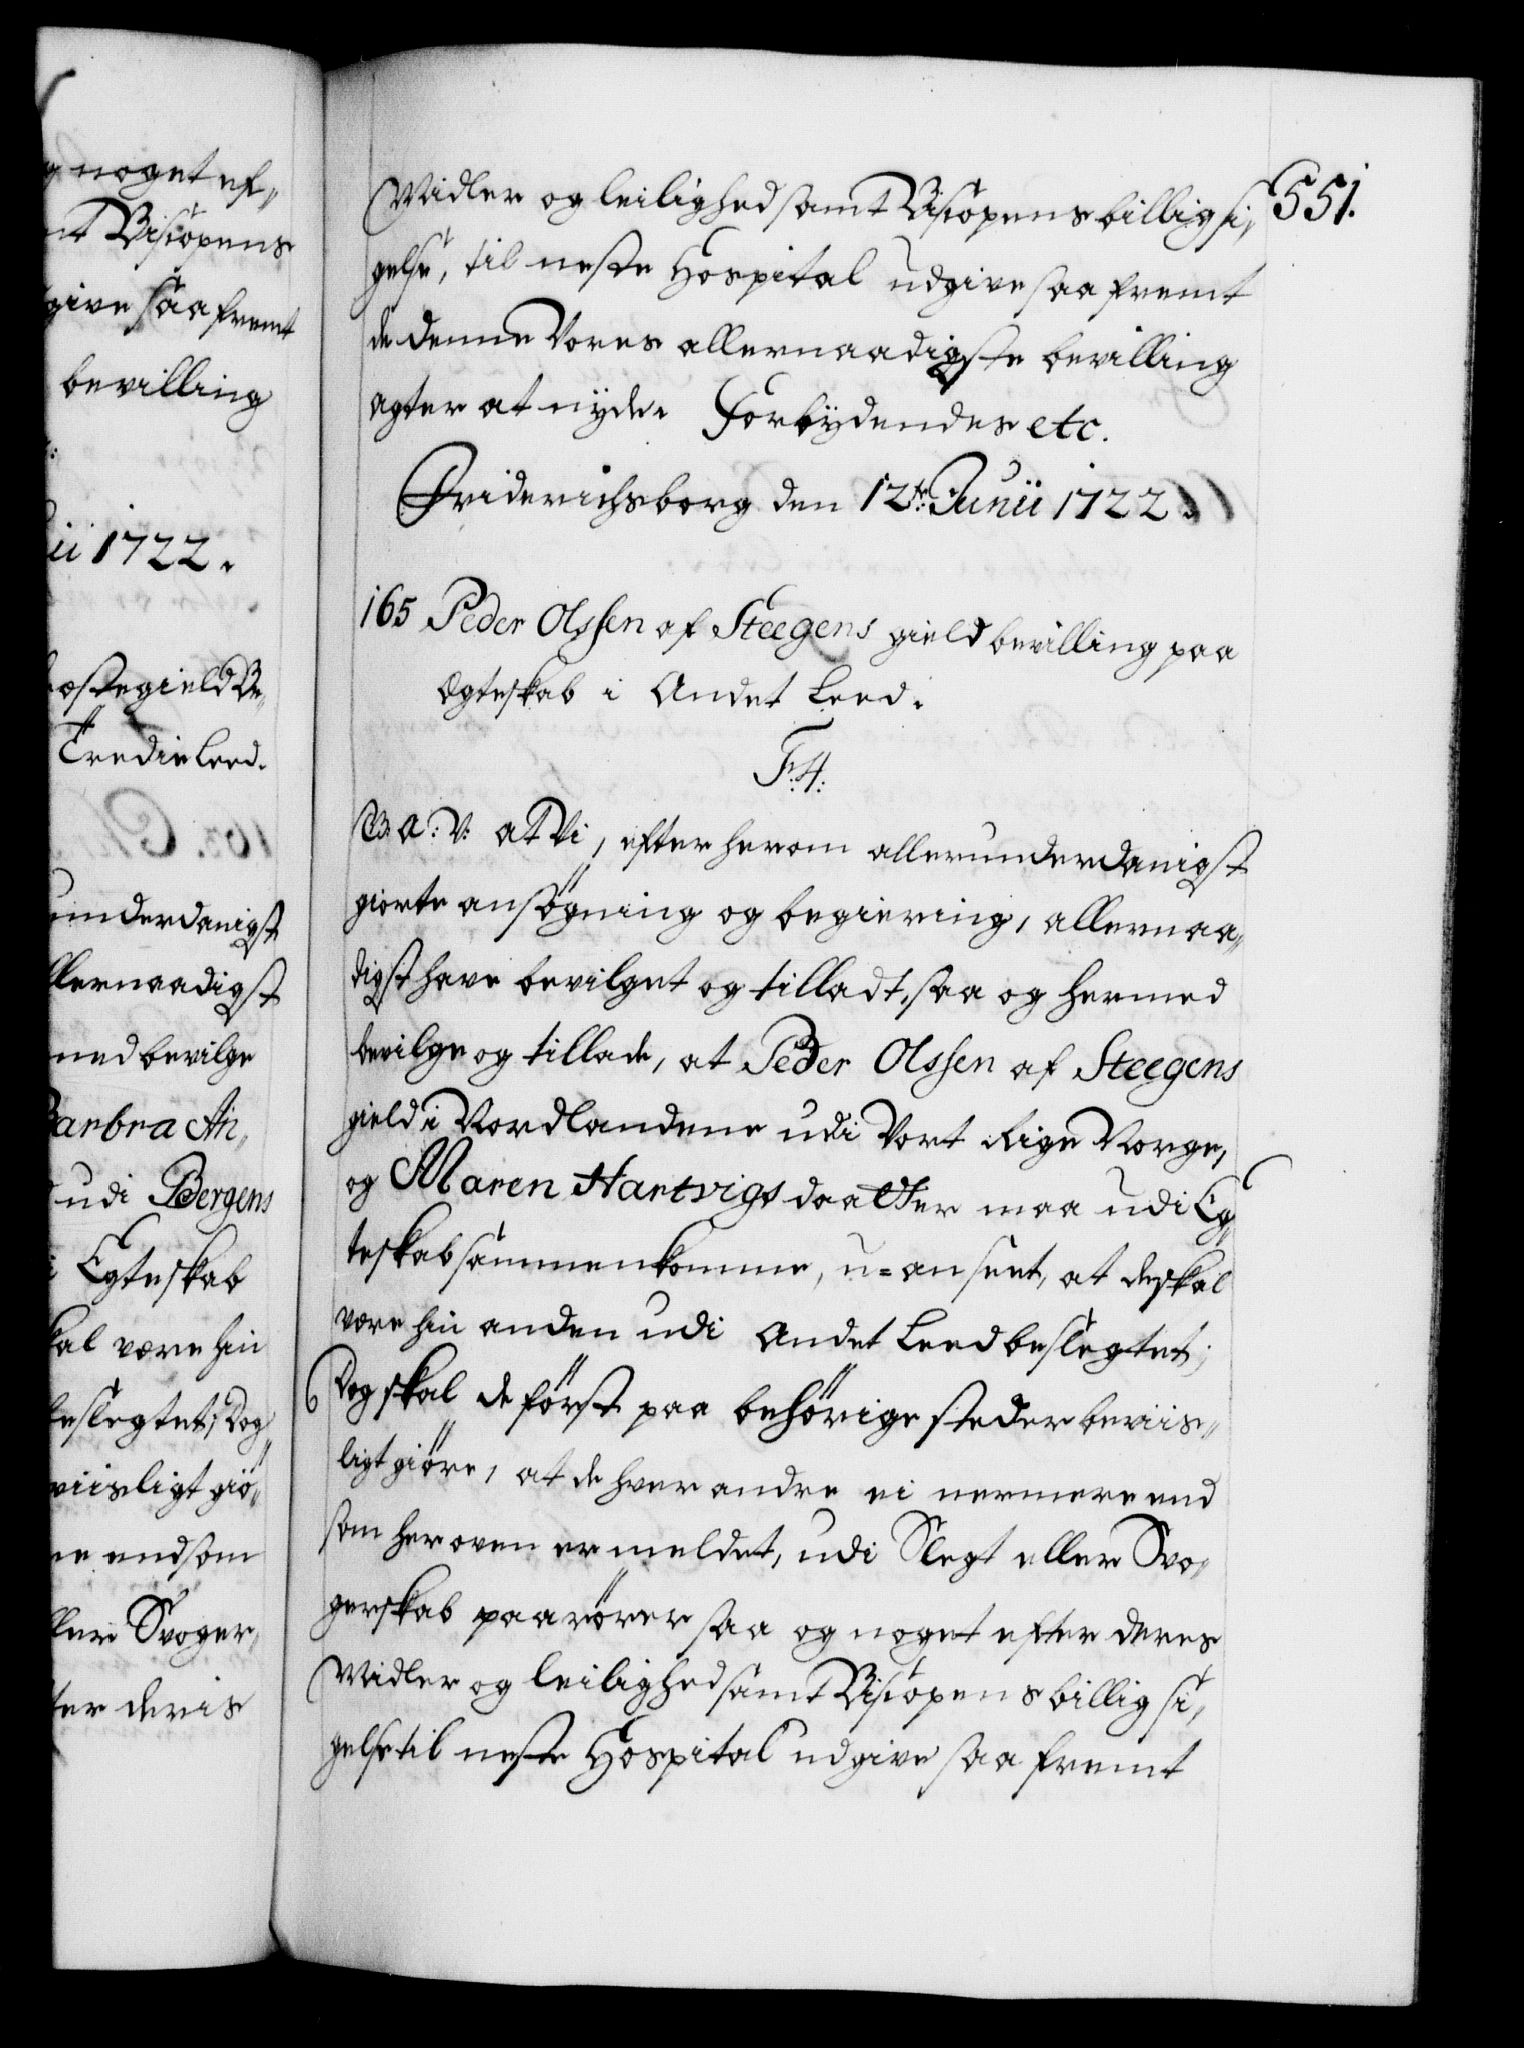 g noget ef„
nt Biscopens
give saafremt
bevilling
ii 1722.
østegield Be„
Tredie Leed.
underdanigst
llernaadigst
med bevilge
Barbra An„
udi Bergens
i Egteskab
kal være hin
beslegtet; Dog
viisligt giø„
re end som
ller Svoger„
ter deris
551.
Midler og leilighed samt Biscopens billig si„
gelse, til neste Hospital udgive saa fremt
de denne Vores allernaadigste bevilling
agter at nyde. Forbydendes etc.
Friderichsborg den 12te: Junii 1722.
165 Peder Olssen af Steegens gield bevilling paa
Ægteskab i Andet Leed.
F:4:
B: a: V: at Vi, efter herom allerunderdanigst
giorte ansøgning og begiering, allernaa„
digst have bevilget og tilladt, saa og hermed
bevilge og tillade, at Peder Olssen af Steegens
gield i Nordlandene udi Vort Rige Norge,
og Maren Hartvigsdaatter maa udi Eg„
teskab sammenkomme, u=anseet, at de skal
være hin anden udi Andet Leed beslegtet;
Dog skal de først paa behörige steder beviis„
ligt giöre, at de hver andre ei nermere end
som her oven er meldet, udi Slegt eller Svo„
gerskab paarörer saa og noget efter deres
Midler og leilighed samt Biscopens billig si„
gelse til neste Hospital udgive saa fremt